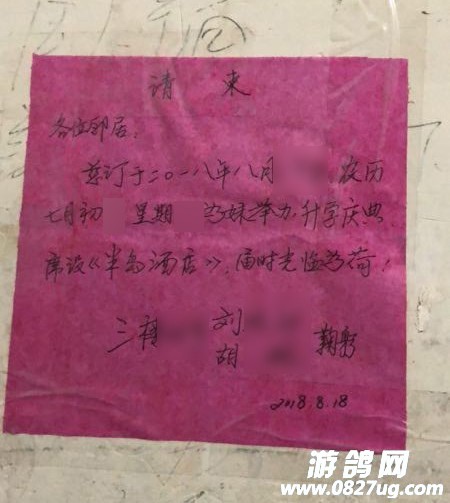 请柬
各位邻居:
兹订于二〇一八年八月 农历
七月初 星期 为妹举办升学庆典
席设《半岛酒店》,届时光临为荷!
三楼 刘
胡 鞠躬
2018.8.18
游鸽网
www.0827ug.com